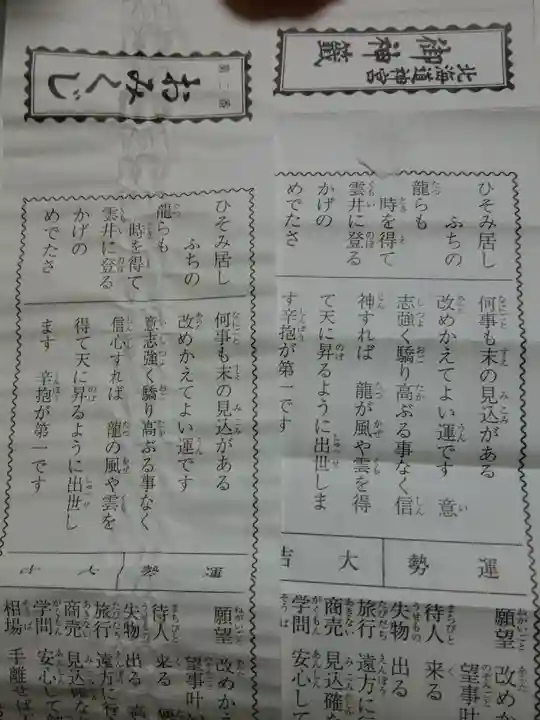 北海道神宮
御神籤
ひそみ居し
ふちの
龍らも
時を得て
雲井に登る
かげの
めでたさ
何事も末の見込がある
改めかえてよい運です 意
志強く驕り高ぶる事なく信
神すれば 龍が風や雲を得
て天に昇るように出世しま
す辛抱が第一です
運勢 大吉
願望 改めか
望事叶い
待人 来る
失物 出る
旅行 遠方に
商売 見込確
学問 安心して
おみくじ
第二番
ひそみ居し
ふちの
龍らも
時を得て
雲井に登る
かげの
めでたさ
何事も末の見込がある
改めかえてよい運です
意志強く驕り高ぶる事なく
信心すれば 龍の風や雲を
得て天に昇るように出世し
ます 辛抱が第一です
運勢 大
願望 改めかえ
望事叶
待人 来る
失物 出る
旅行 遠方に行
商売 見込確
学問 安心し
相場 手離せば